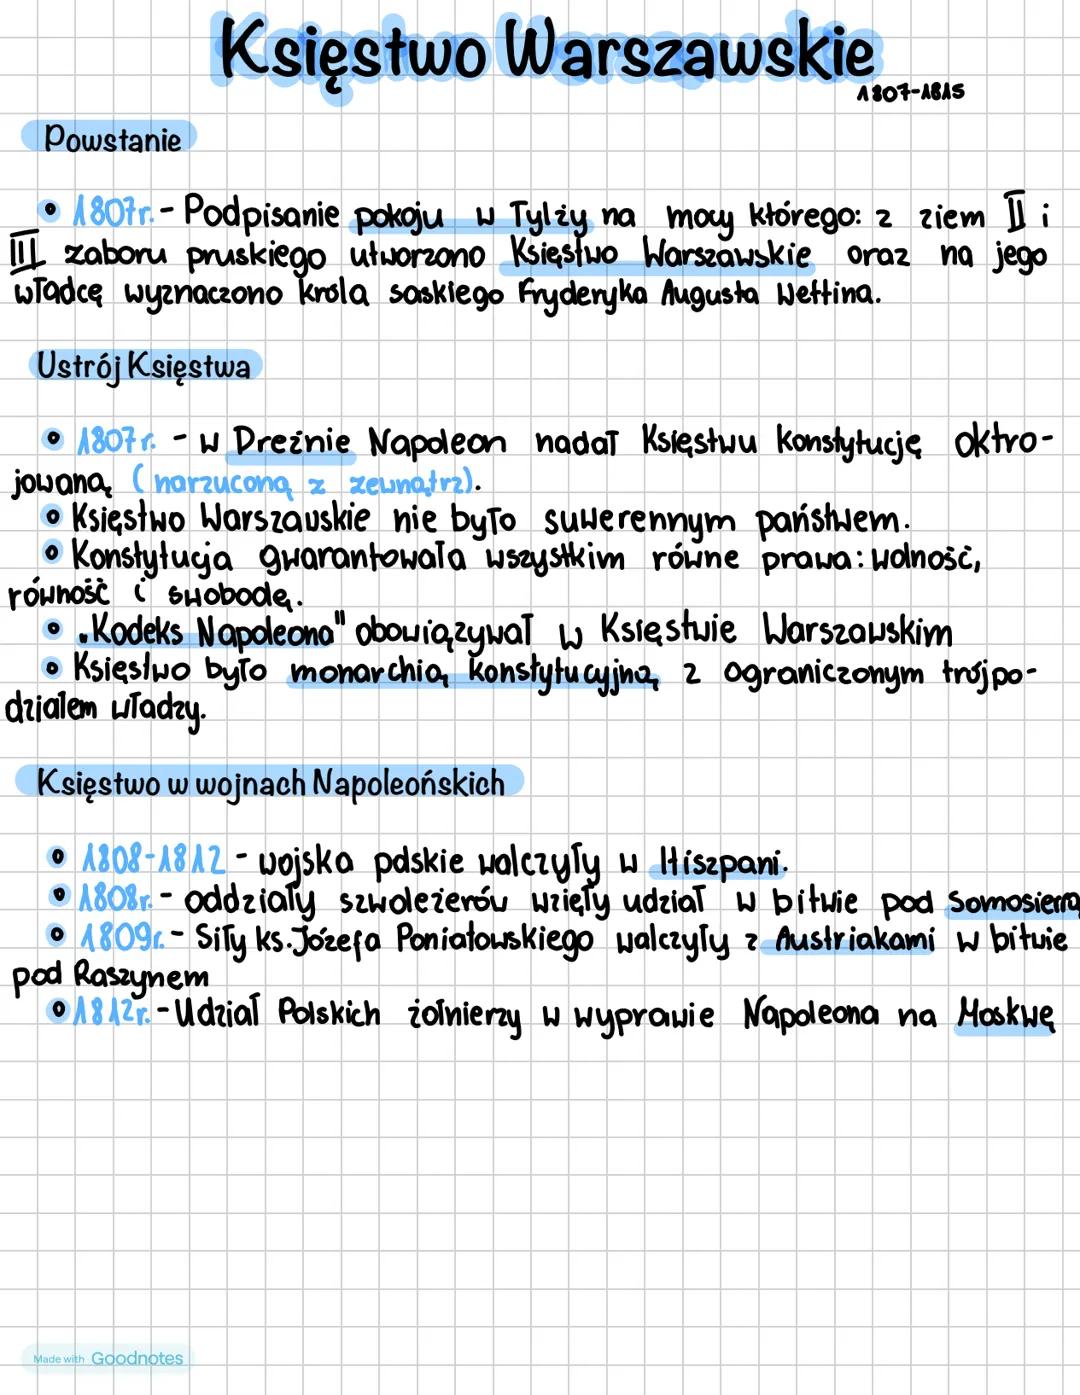 Księstwo Warszawskie
1807-1815
Powstanie
• 1807r. - Podpisanie pokoju w Tylży na mocy którego: z ziem II i
III zaboru pruskiego utworzono Księstwo Warszawskie oraz na jego
władcę wyznaczono króla saskiego Fryderyka Augusta Wettina.
Ustrój Księstwa
• 1807r. - w Dreźnie Napoleon nadał Księstwu Konstytucję oktro-
jowaną (narzuconą z zewnątrz).
• Księstwo Warszawskie nie było suwerennym państwem.
• Konstytucja gwarantowała wszystkim równe prawa: wolność,
równość i swobodę.
• „Kodeks Napoleona" obowiązywał w Księstwie Warszawskim
• Księstwo było monarchią konstytucyjną z ograniczonym trójpo-
działem władzy.
Księstwo w wojnach Napoleońskich
• 1808-1812 - wojska polskie walczyły w Hiszpani.
• 1808r. - oddziały szwoleżerów wzięły udział w bitwie pod Somosierrą
• 1809r. - Siły ks. Józefa Poniatowskiego walczyły z Austriakami w bitwie
pod Raszynem
• 1812r. - Udział Polskich żołnierzy w wyprawie Napoleona na Moskwę
Made with Goodnotes